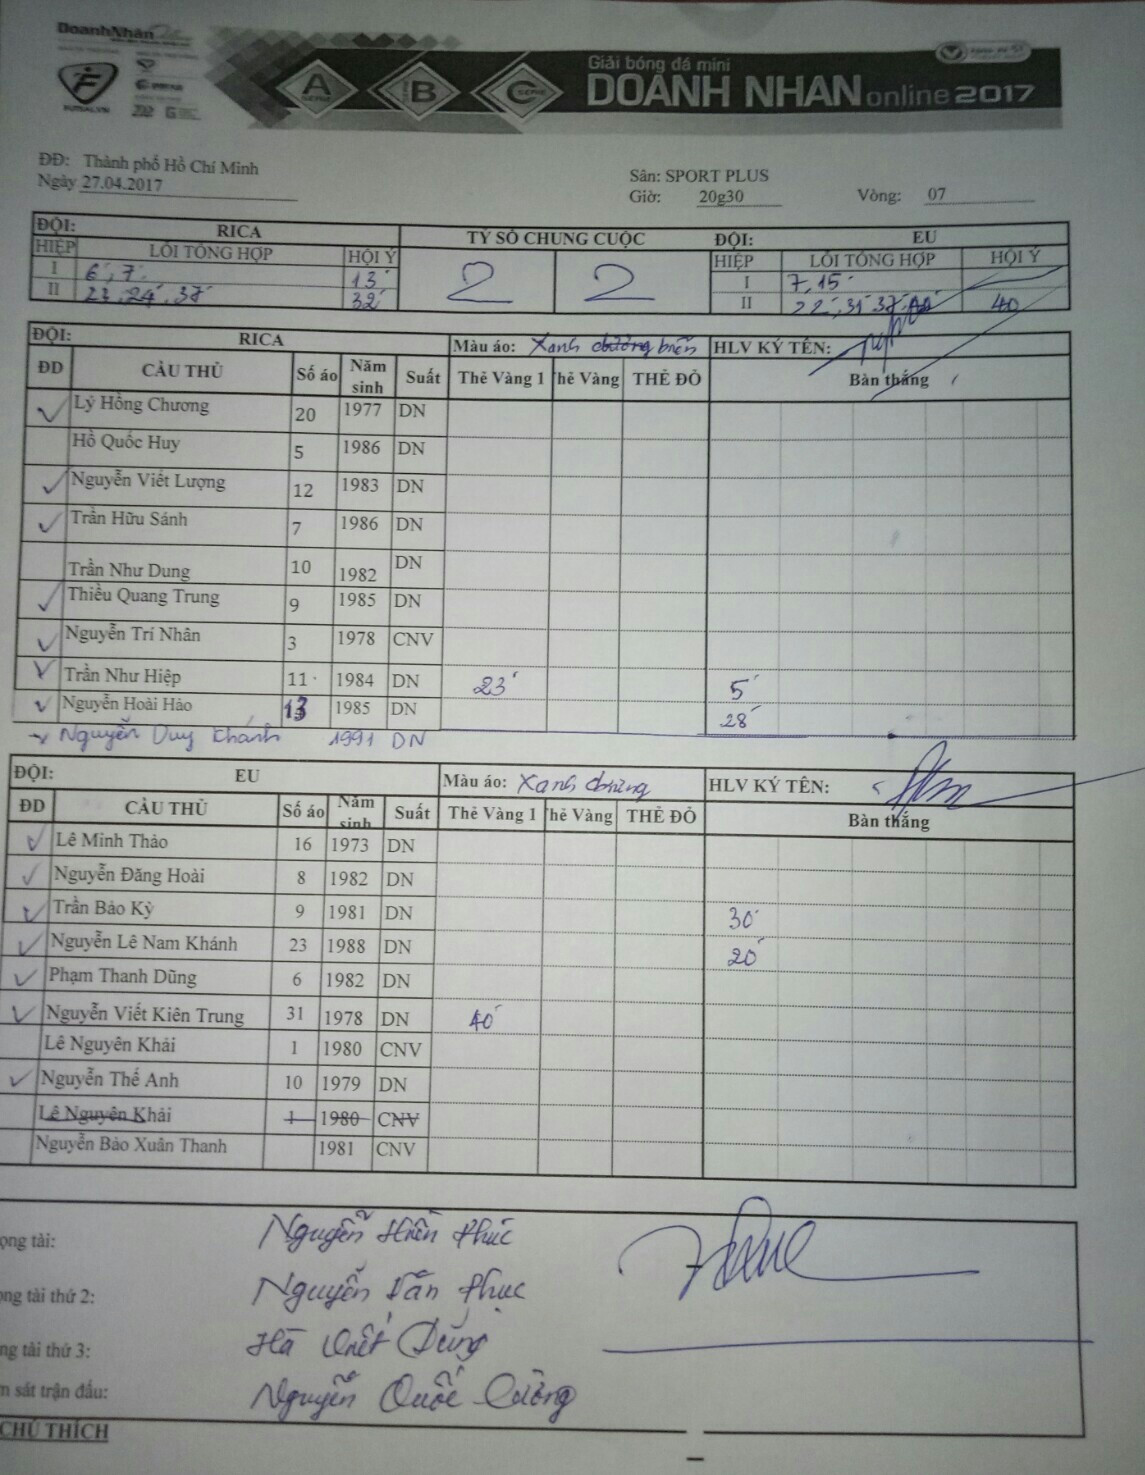 DoanhNhân
FUTSALVN
A SERIE
SERIE B
C SERIE
Giải bóng đá mini
DOANH NHAN online 2017
ĐĐ: Thành phố Hồ Chí Minh
Ngày 27.04.2017
Sân: SPORT PLUS
Giờ: 20g30 Vòng: 07
ĐỘI: RICA TỶ SỐ CHUNG CUỘC ĐỘI: EU
HIỆP LỖI TỔNG HỢP HỘI Ý HIỆP LỖI TỔNG HỢP HỘI Ý
I 6', 7' 13' 2 2 I 7, 15'
II 23', 24', 37' 32' II 22', 31' 37' 40
ĐỘI: RICA Màu áo: Xanh dương biển HLV KÝ TÊN:
ĐD CẦU THỦ Số áo Năm sinh Suất Thẻ Vàng 1 hẻ Vàng THẺ ĐỎ Bàn thắng
✓ Lý Hồng Chương 20 1977 DN
Hồ Quốc Huy 5 1986 DN
✓ Nguyễn Viết Lượng 12 1983 DN
✓ Trần Hữu Sánh 7 1986 DN
Trần Như Dung 10 1982 DN
✓ Thiều Quang Trung 9 1985 DN
✓ Nguyễn Trí Nhân 3 1978 CNV
✓ Trần Như Hiệp 11 1984 DN 23' 5'
✓ Nguyễn Hoài Hảo 13 1985 DN 28'
✓ Nguyễn Duy Khánh 1991 DN
ĐỘI: EU Màu áo: Xanh chừng HLV KÝ TÊN:
ĐD CẦU THỦ Số áo Năm sinh Suất Thẻ Vàng 1 hẻ Vàng THẺ ĐỎ Bàn thắng
✓ Lê Minh Thảo 16 1973 DN
✓ Nguyễn Đăng Hoài 8 1982 DN
✓ Trần Bảo Kỳ 9 1981 DN 30'
✓ Nguyễn Lê Nam Khánh 23 1988 DN 20'
✓ Phạm Thanh Dũng 6 1982 DN
✓ Nguyễn Viết Kiên Trung 31 1978 DN 40'
Lê Nguyên Khải 1 1980 CNV
✓ Nguyễn Thế Anh 10 1979 DN
Lê Nguyên Khải 1 1980 CNV
Nguyễn Bảo Xuân Thanh 1981 CNV
ọng tài: Nguyễn Hiền Phúc
ọng tài thứ 2: Nguyễn Văn Phục
ng tài thứ 3: Hà Dũng
m sát trận đấu: Nguyễn Quốc Cường
CHÚ THÍCH